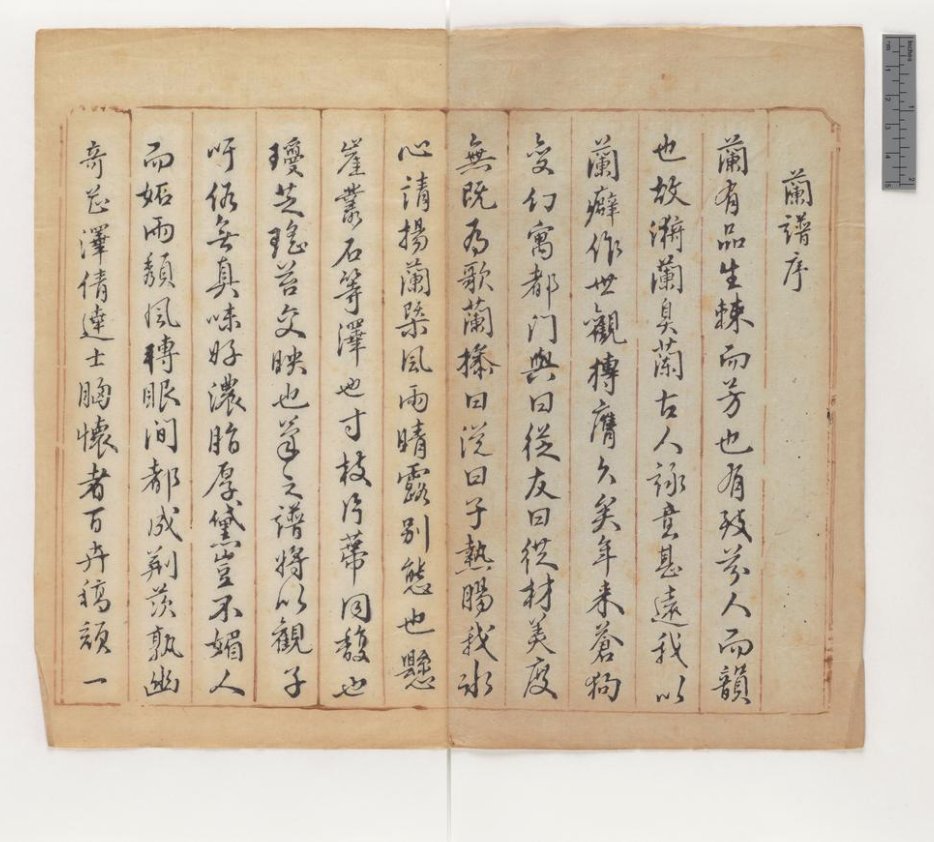 蘭譜序
蘭有品生棘而芳也有致芬人而韻
也故滫蘭臭蘭古人詠意甚遠我以
蘭癖作世觀摶膺久矣年来蒼狗
變幻寓都门與曰從友曰從材美度
無既為歌蘭操曰從曰子熱腸我冰
心請揚蘭槩風雨晴露别態也懸
崖叢石等澤也寸枝片蒂同馥也
瓊芝瑤苔交映也筆之譜將以觀子
吁俗無真味好濃脂厚黛豈不媚人
而妬雨頹風轉眼间都成荆茨孰幽
奇芷澤倩達士胸懷者百卉稿顔一